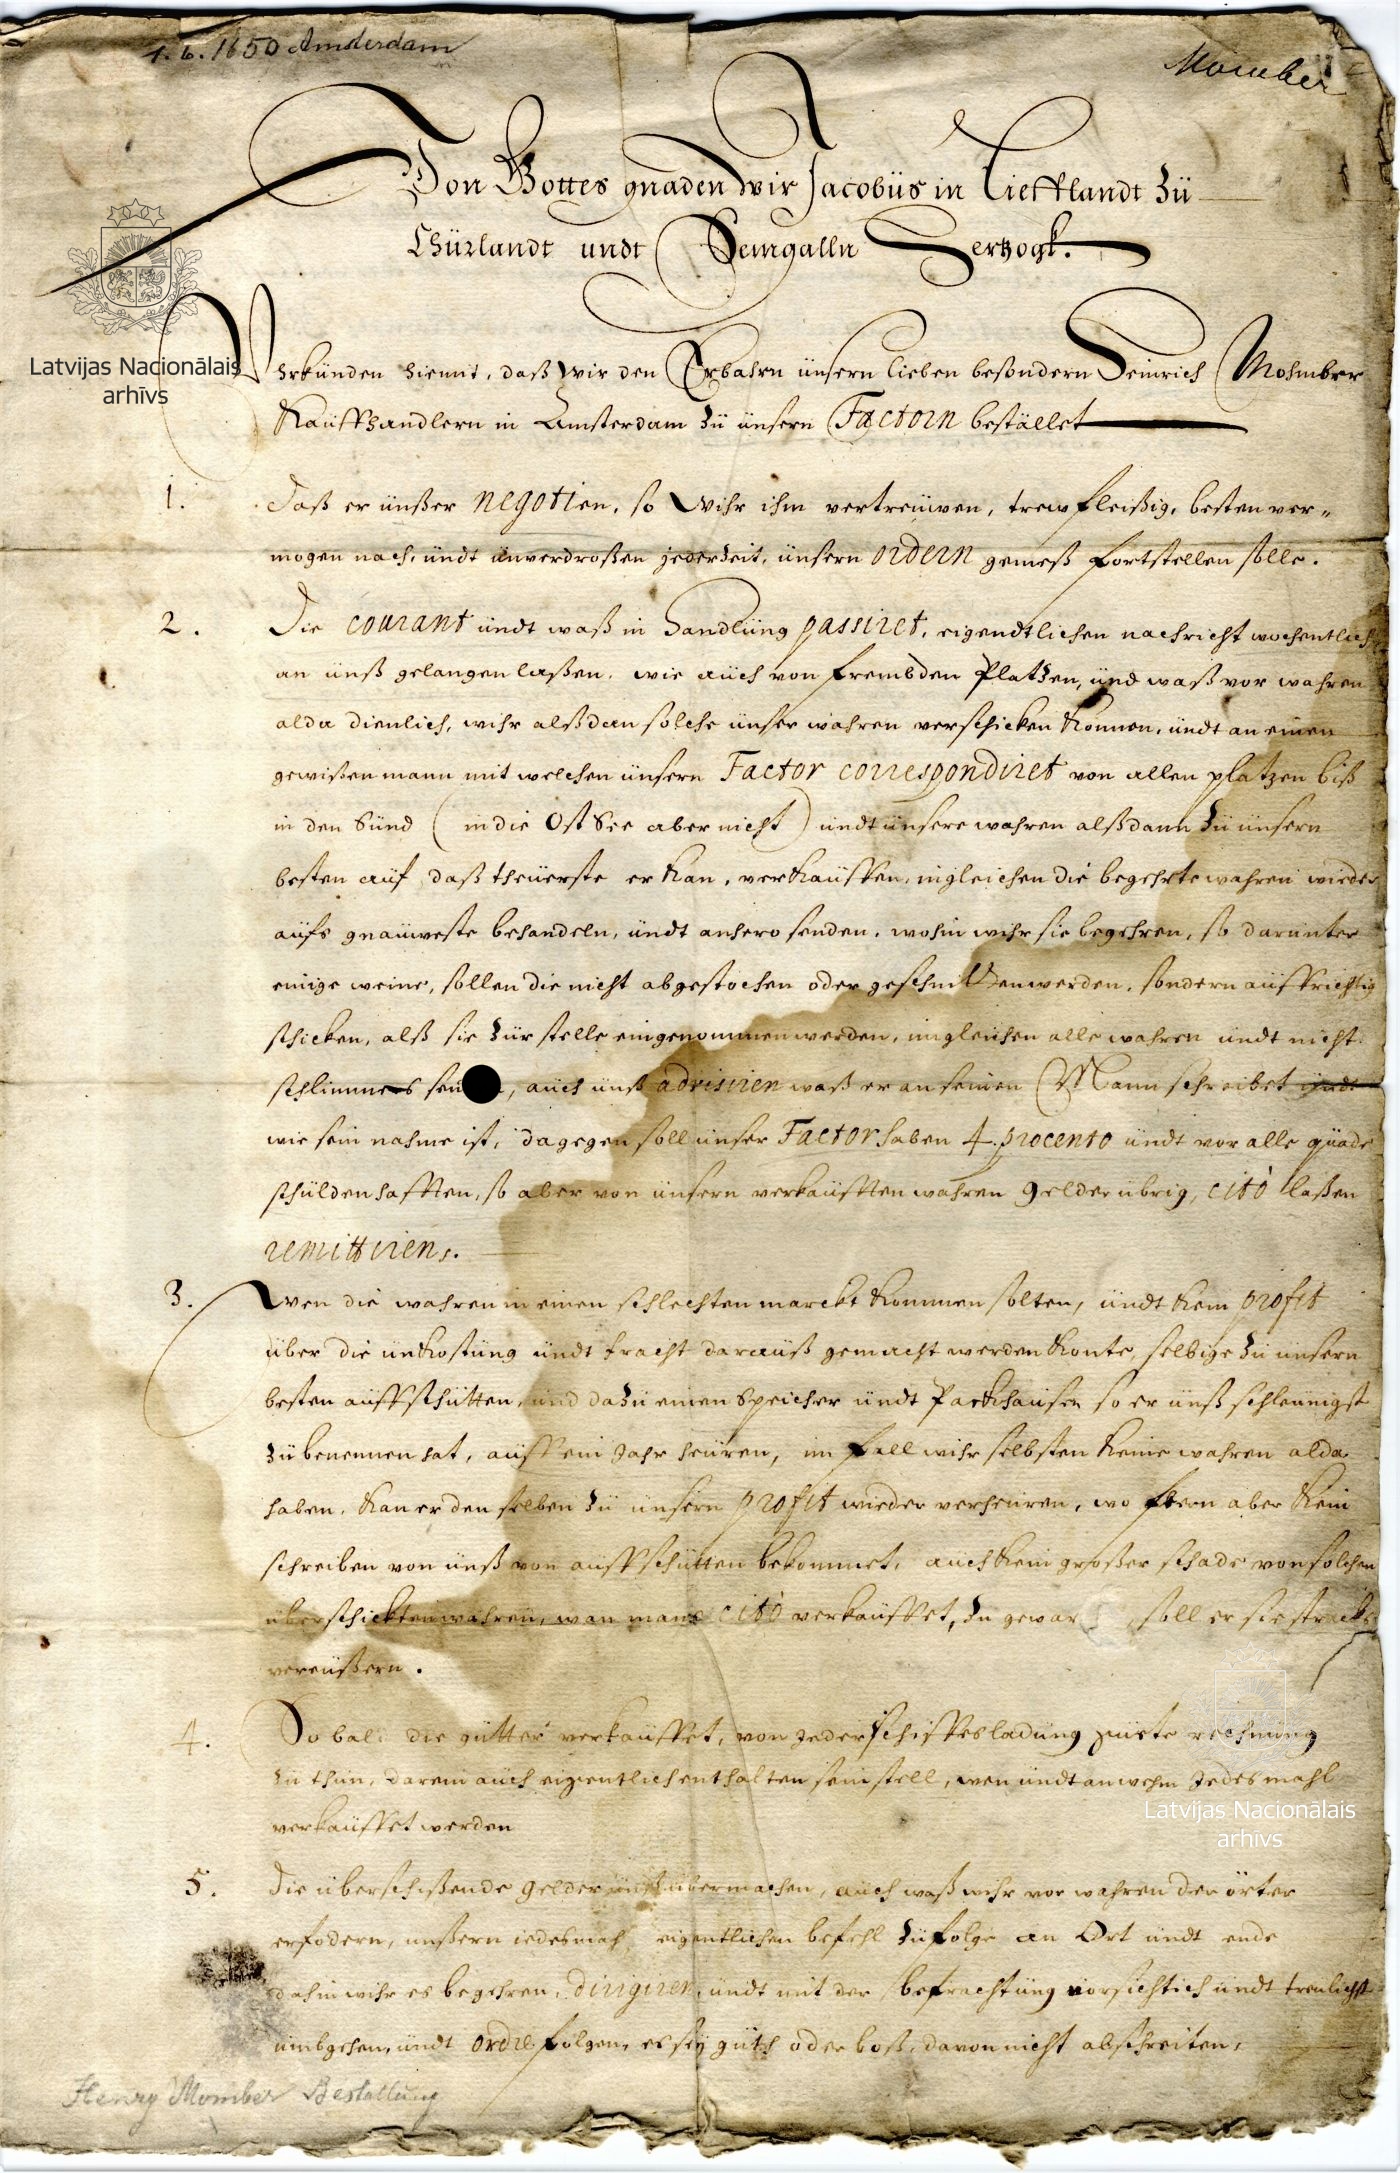 1. 6. 1650 Amsterdam
Momber
Von Gottes gnaden wir Jacobüs in Liefflandt Zü
Chürlandt undt Semgalln Hertzogk.
Latvijas Nacionālais
arhīvs
Uhrkünden hiemit, daß wir den Erbahrn ünsern lieben besondern Heinrich Mohmber
Kauffhandlern in Amsterdam Zü ünsern Factorn bestället
1. Daß er ünßer negotien, so wihr ihm vertreüwen, trewfleißig, besten ver-
mogen nach, ündt unverdroßen jederzeit, ünsern ordern gemeß fortstellen solle.
2. Die courant ündt waß in Handlüng passiret, eigendtlichen nachricht wochentlich
an ünß gelangen laßen, wie aüch von frembden Platzen, ünd waß vor wahren
alda dienlich, wihr alßdan solche ünser wahren verschicken konnen, ündt an einen
gewißen mann mit welchen ünsern Factor correspondiret von allen platzen biß
in den Sünd (in die Ost See aber nicht) ündt ünsere wahren alßdann Zü ünsern
besten aüf daß theüerste er kan, verkaüffen, ingleichen die begehrte wahren wieder
aüfs gnaüweste behandeln, ündt anhero senden, wohin wihr sie begehren, so darünter
einige weine, sollen die nicht abgestochen oder geschnitten werden, sondern aüffrichtig
schicken, alß sie Zür stelle eingenommen werden, ingleichen alle wahren ündt nicht
schlimmes, aüch ünß advisiren waß er an seinen Mann schreibet ündt
wie sein nahme ist, dagegen soll ünser Factor haben 4. procento ündt vor alle qüade
schülden hafften, so aber von ünsern verkaüfften wahren gelder übrig, citò laßen
remittiren.
3. Wen die wahren in einen schlechten marckt kommen solten, ündt kein profit
über die ünkostüng ündt fracht daraüß gemacht werden konte, selbige Zü ünsern
besten aüffschütten, ünd daZü einen Speicher ündt Packhaüser so er ünß schleünigst
Zü benennen hat, aüff ein Jahr heüren, im fall wihr selbsten keine wahren alda
haben, kan er den selben Zü ünsern profit wieder verheüren, wo fern aber kein
schreiben von ünß von aüffschütten bekommet, aüch kein großer schade von solchen
überschickten wahren, wan man citò verkaüffet, Zü gewar, soll er sie stracks
vereüßern.
4. So bald die gütter verkaüffet, von Jeder schiffesladüng rechnüng
Zü thün, darein aüch eigentlich enthalten sein soll, wen ündt an wehm Jedesmahl
verkaüffet werden
Latvijas Nacionālais
arhīvs
5. Die überschißende gelder übermachen, aüch waß wihr vor wahren der örter
erfodern, ünßern iedesmahl eigentlichen befehl Züfolge an Ort ündt ende
dahin wihr es begehren, dirigiren, ündt mit der befrachtüng vorsichtich ündt trewlichst
ümbgehen, ündt ordre folgen, es sey güth oder boß, davon nicht abschreiten,
Henry Momber Bestallung